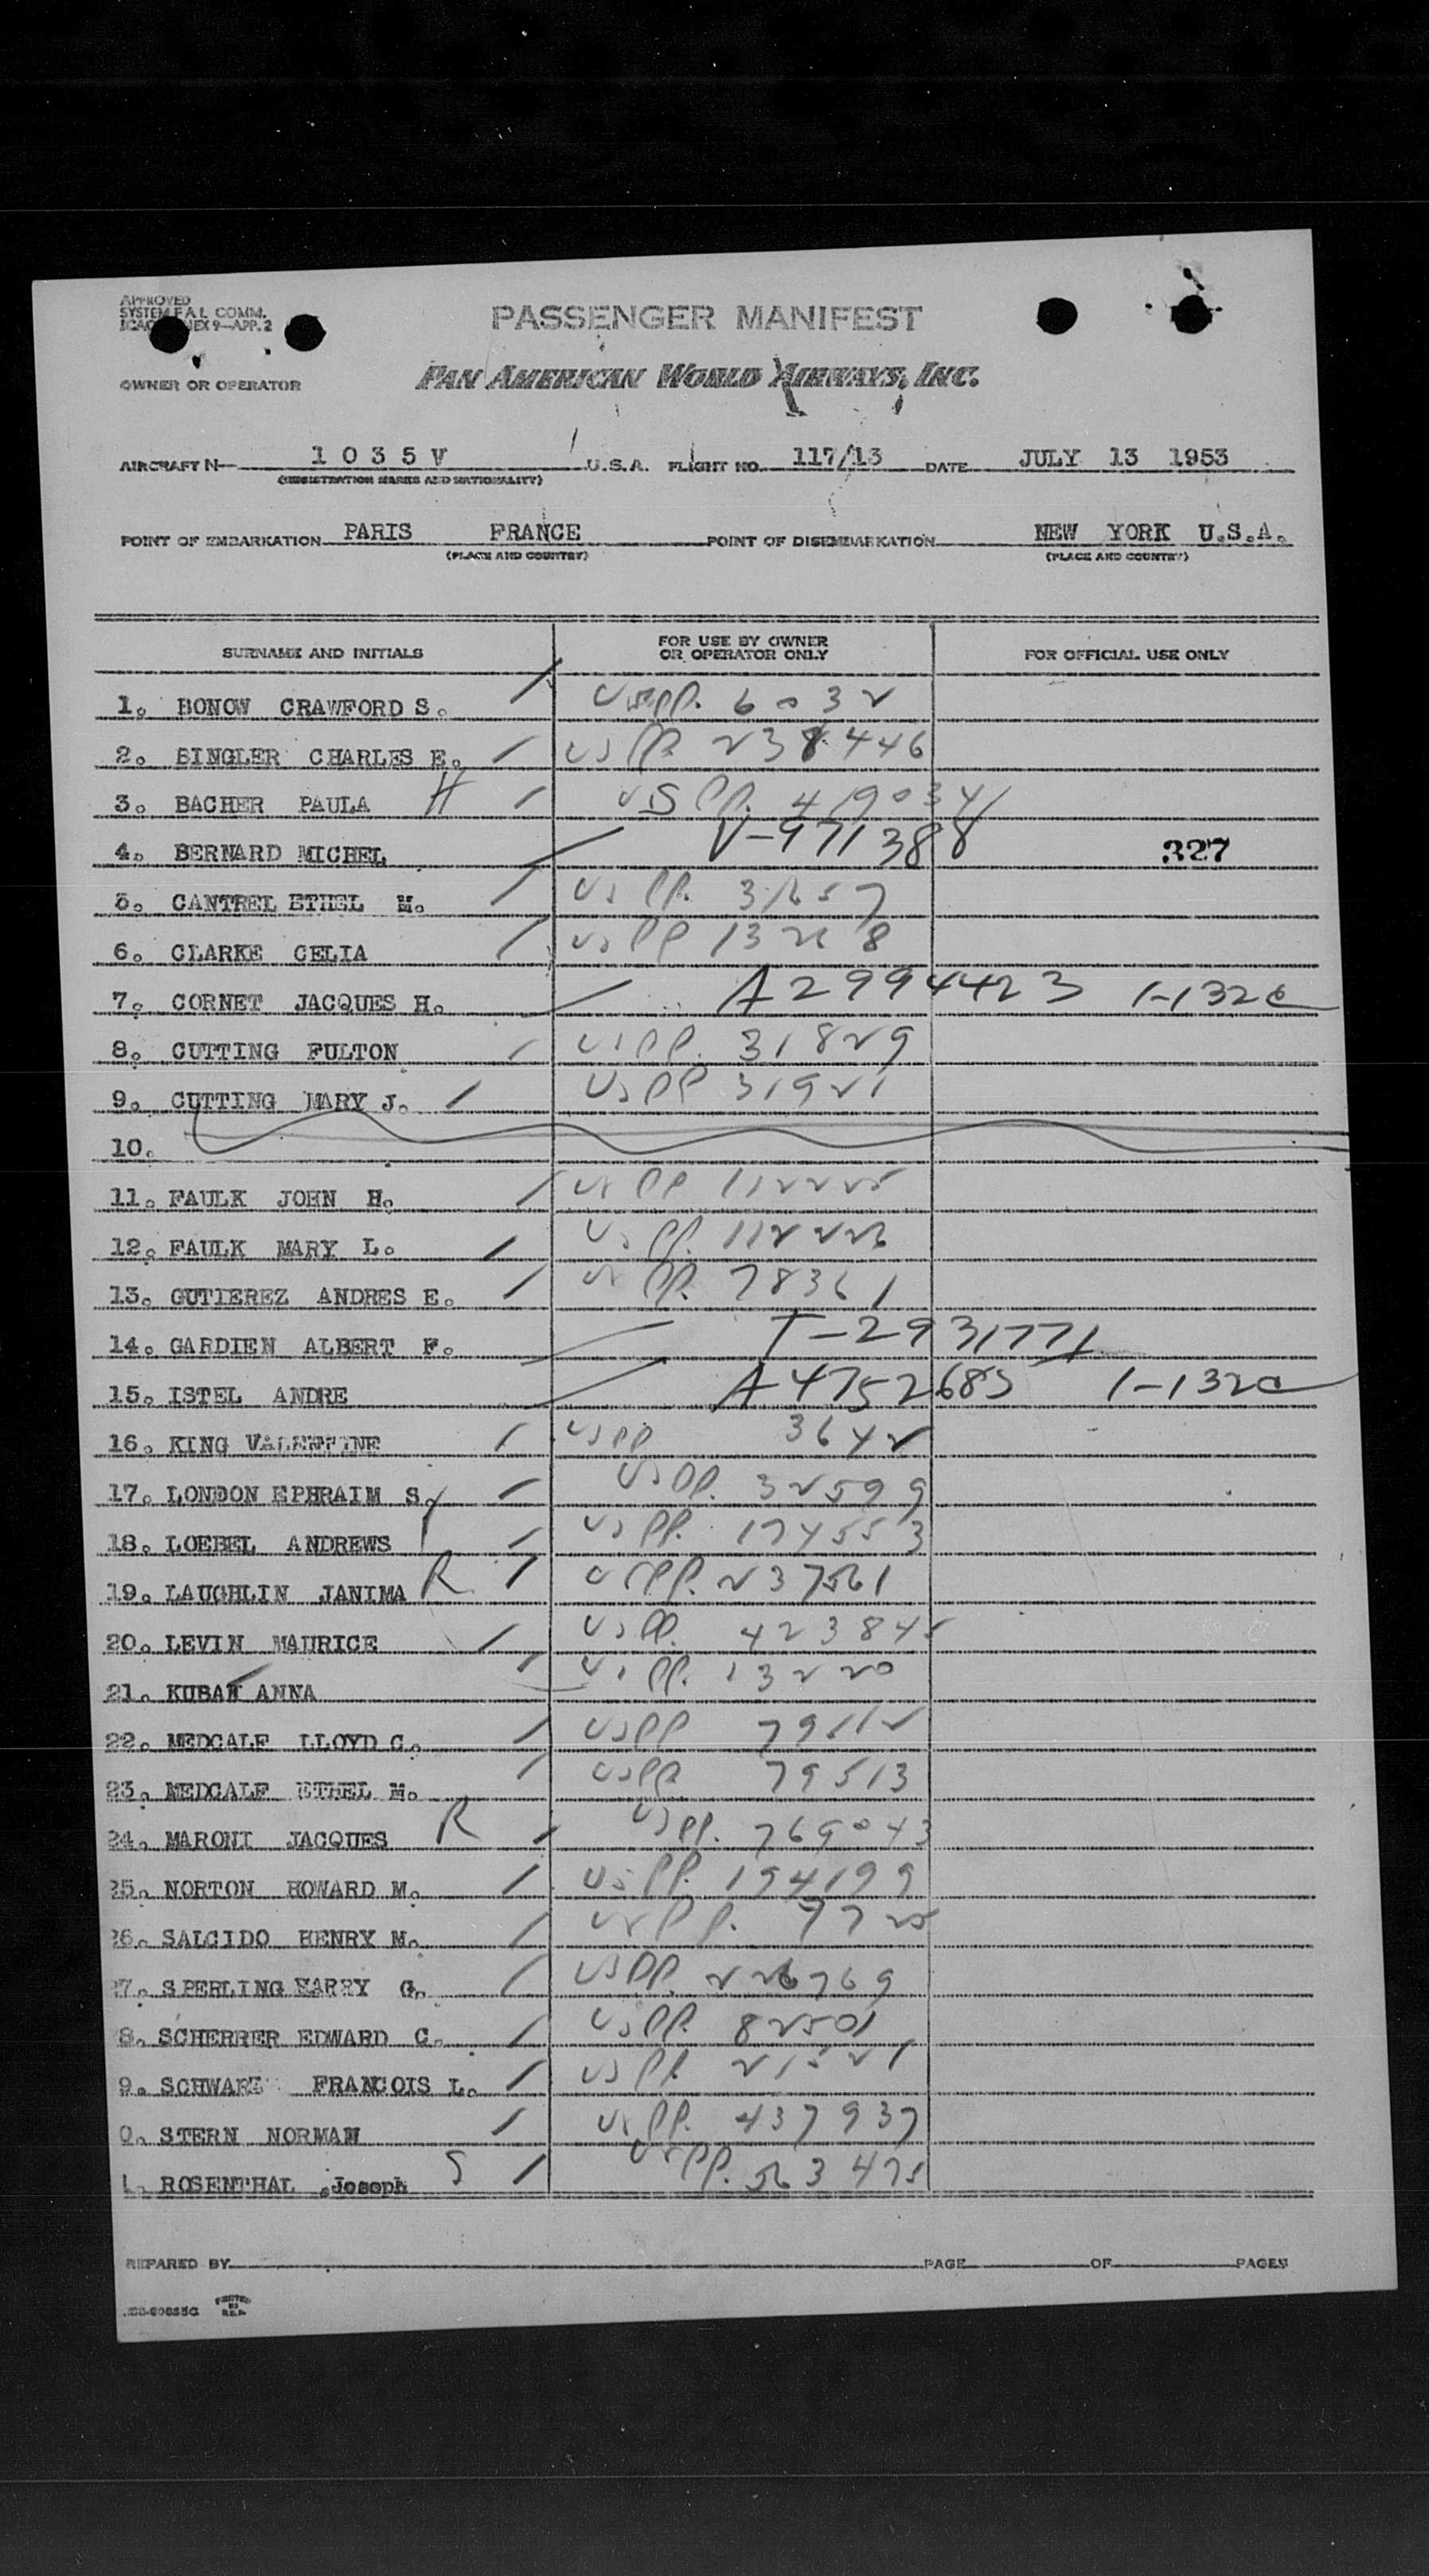 APPROVED
SYSTEM F.A.L. COMM.
PASSENGER MANIFEST
OWNER OR OPERATOR PAN AMERICAN WORLD AIRWAYS, INC.
AIRCRAFT N 1035V U.S.A. FLIGHT NO. 117/13 DATE JULY 13 1953
(REGISTRATION MARKS AND NATIONALITY)
POINT OF EMBARKATION PARIS FRANCE POINT OF DISEMBARKATION NEW YORK U.S.A.
(PLACE AND COUNTRY) (PLACE AND COUNTRY)
SURNAME AND INITIALS FOR USE BY OWNER OR OPERATOR ONLY FOR OFFICIAL USE ONLY
1. BONOW CRAWFORD S. USPP. 6032
2. BINGLER CHARLES E. USPP
3. BACHER PAULA H USPP. 419034
4. BERNARD MICHEL V-971388 327
5. CANTREL ETHEL M. USPP.
6. CLARKE CELIA USPP
7. CORNET JACQUES H. A2994423 1-132c
8. CUTTING FULTON USPP. 31829
9. CUTTING MARY J. USPP 31921
10.
11. FAULK JOHN H. USPP 112225
12. FAULK MARY L. USPP. 112226
13. GUTIEREZ ANDRES E. USPP. 78361
14. GARDIEN ALBERT F. T-2931771
15. ISTEL ANDRE A4752685 1-132c
16. KING VALENTINE USPP 3642
17. LONDON EPHRAIM S. USPP. 32599
18. LOEBEL ANDREWS USPP. 174553
19. LAUGHLIN JANIMA R USPP. 237561
20. LEVIN MAURICE USPP. 423845
21. KUBAN ANNA USPP. 13220
22. MEDCALF LLOYD C. USPP 79112
23. MEDCALF ETHEL M. USPP 79513
24. MARONI JACQUES R USPP. 769043
25. NORTON HOWARD M. USPP. 194199
26. SALCIDO HENRY M. USPP. 7725
27. SPERLING HARRY G. USPP. 226769
8. SCHERRER EDWARD C. USPP. 82501
9. SCHWARZ FRANCOIS L. USPP. 21521
0. STERN NORMAN USPP. 437937
1. ROSENTHAL Joseph S USPP. 563475
REPARED BY PAGE OF PAGES